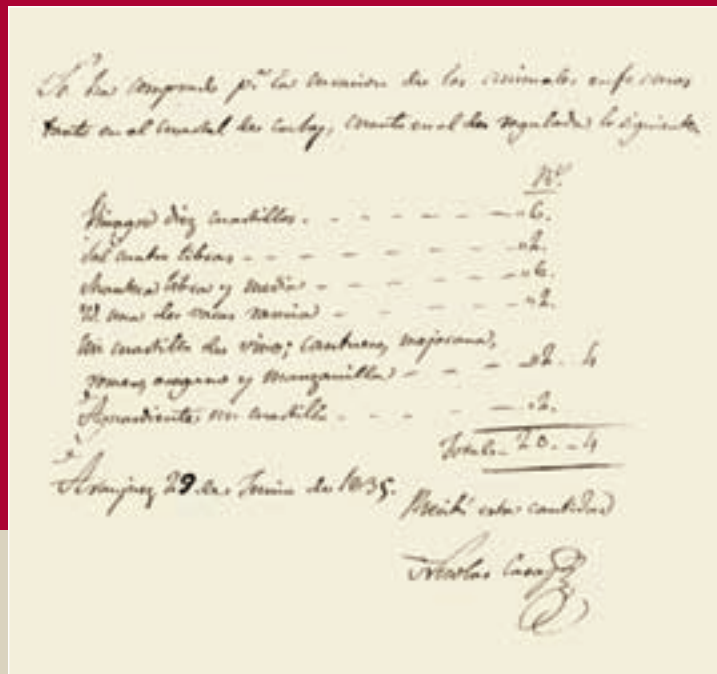 Se ha comprado pª la curacion de los animales enfermos
tanto en el cuartel de        , cuanto en el de        lo siguiente
Rˢ
Vinagre diez cuartillos - - - - - - - 6.
Sal cuatro libras - - - - - - - 2.
Manteca libra y media - - - - - - - 6.
Id. una de        rancia - - - - - - - 2.
Un cuartillo de vino; cantueso, mejorana,
romero, oregano y manzanilla - - - - 2. 4
Aguardiente un cuartillo - - - - - - 2.
Total - 20. - 4
Aranjuez 29 de Junio de 1835.
Recibí esta cantidad
Nicolas Casas